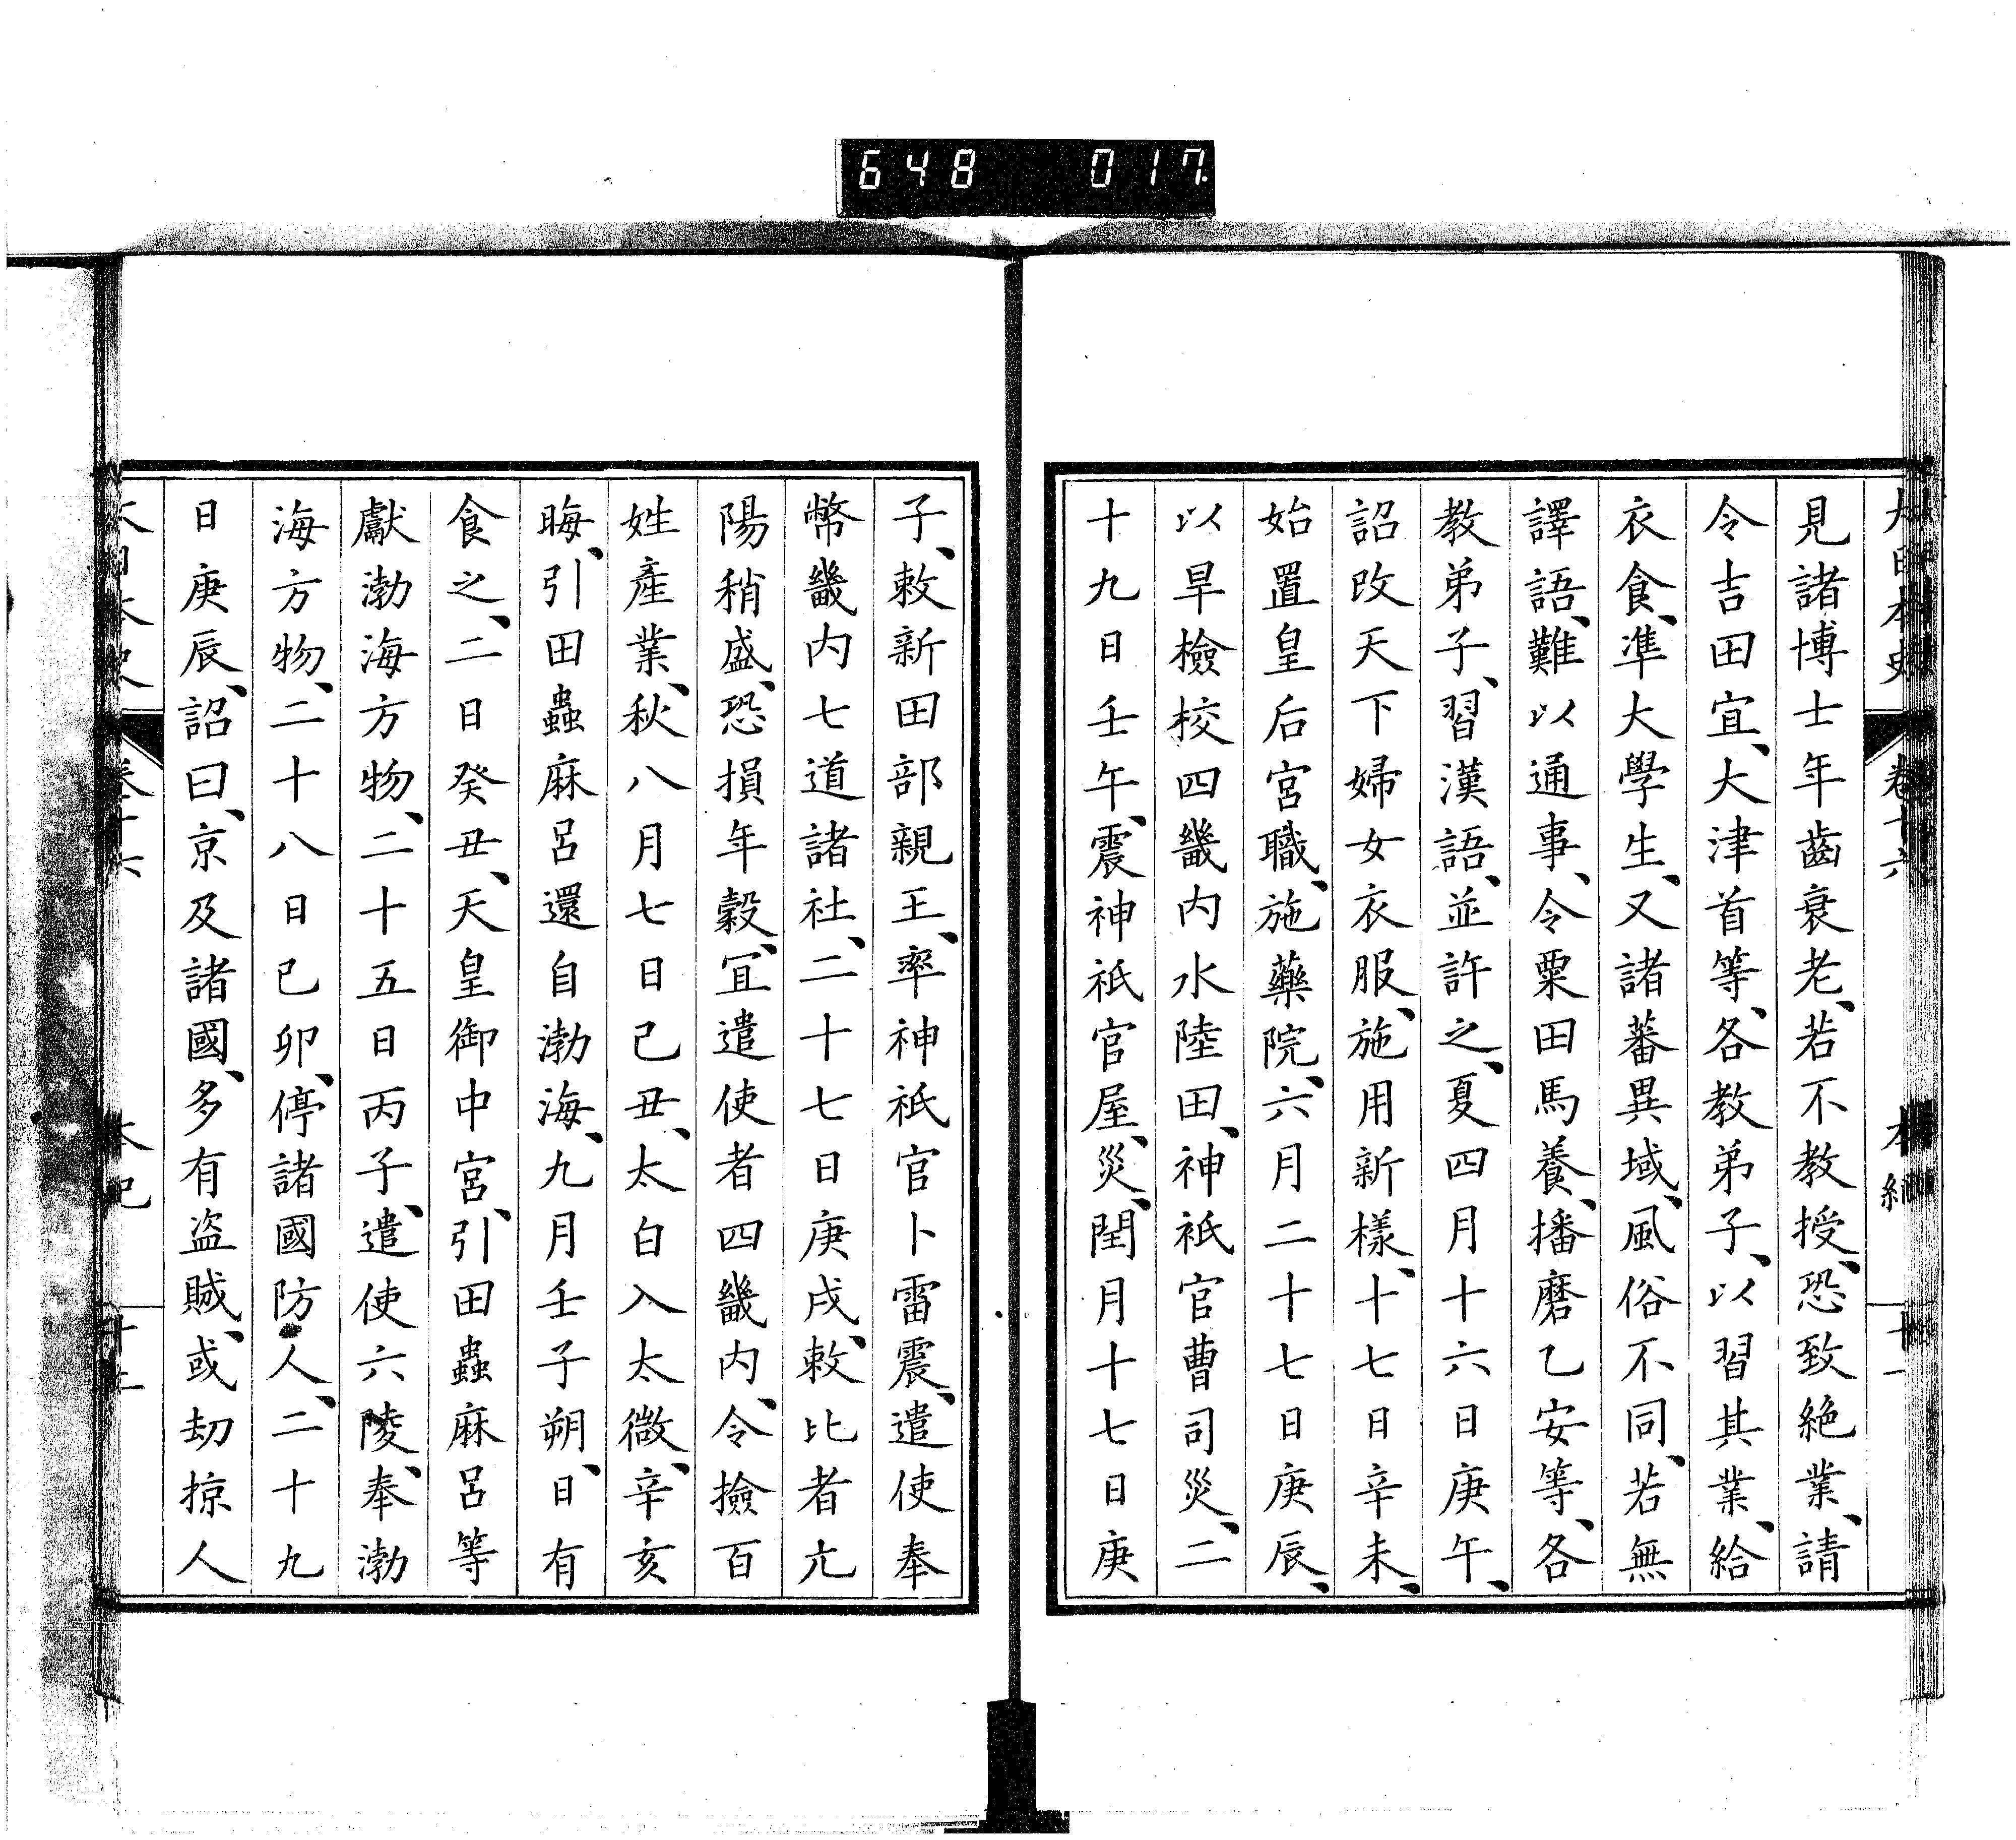 648 017
大日本史 卷十六 本紀 十一
見諸博士年齒衰老、若不教授、恐致絶業、請
令吉田宜、大津首等、各教弟子、以習其業、給
衣食、準大學生、又諸蕃異域、風俗不同、若無
譯語、難以通事、令粟田馬養、播磨乙安等、各
教弟子、習漢語、並許之、夏四月十六日庚午、
詔改天下婦女衣服、施用新樣、十七日辛未、
始置皇后宮職、施藥院、六月二十七日庚辰、
以旱檢校四畿内水陸田、神祇官曹司災、二
十九日壬午、震神祇官屋、災、閏月十七日庚
子、敕新田部親王、率神祇官卜雷震、遣使奉
幣畿内七道諸社、二十七日庚戌、敕比者亢
陽稍盛、恐損年穀、宜遣使者四畿内、令撿百
姓產業、秋八月七日己丑、太白入太微、辛亥
晦、引田蟲麻呂還自渤海、九月壬子朔、日有
食之、二日癸丑、天皇御中宮、引田蟲麻呂等
獻渤海方物、二十五日丙子、遣使六陵、奉渤
海方物、二十八日己卯、停諸國防人、二十九
日庚辰、詔曰、京及諸國、多有盜賊、或劫掠人
卷十六 本紀